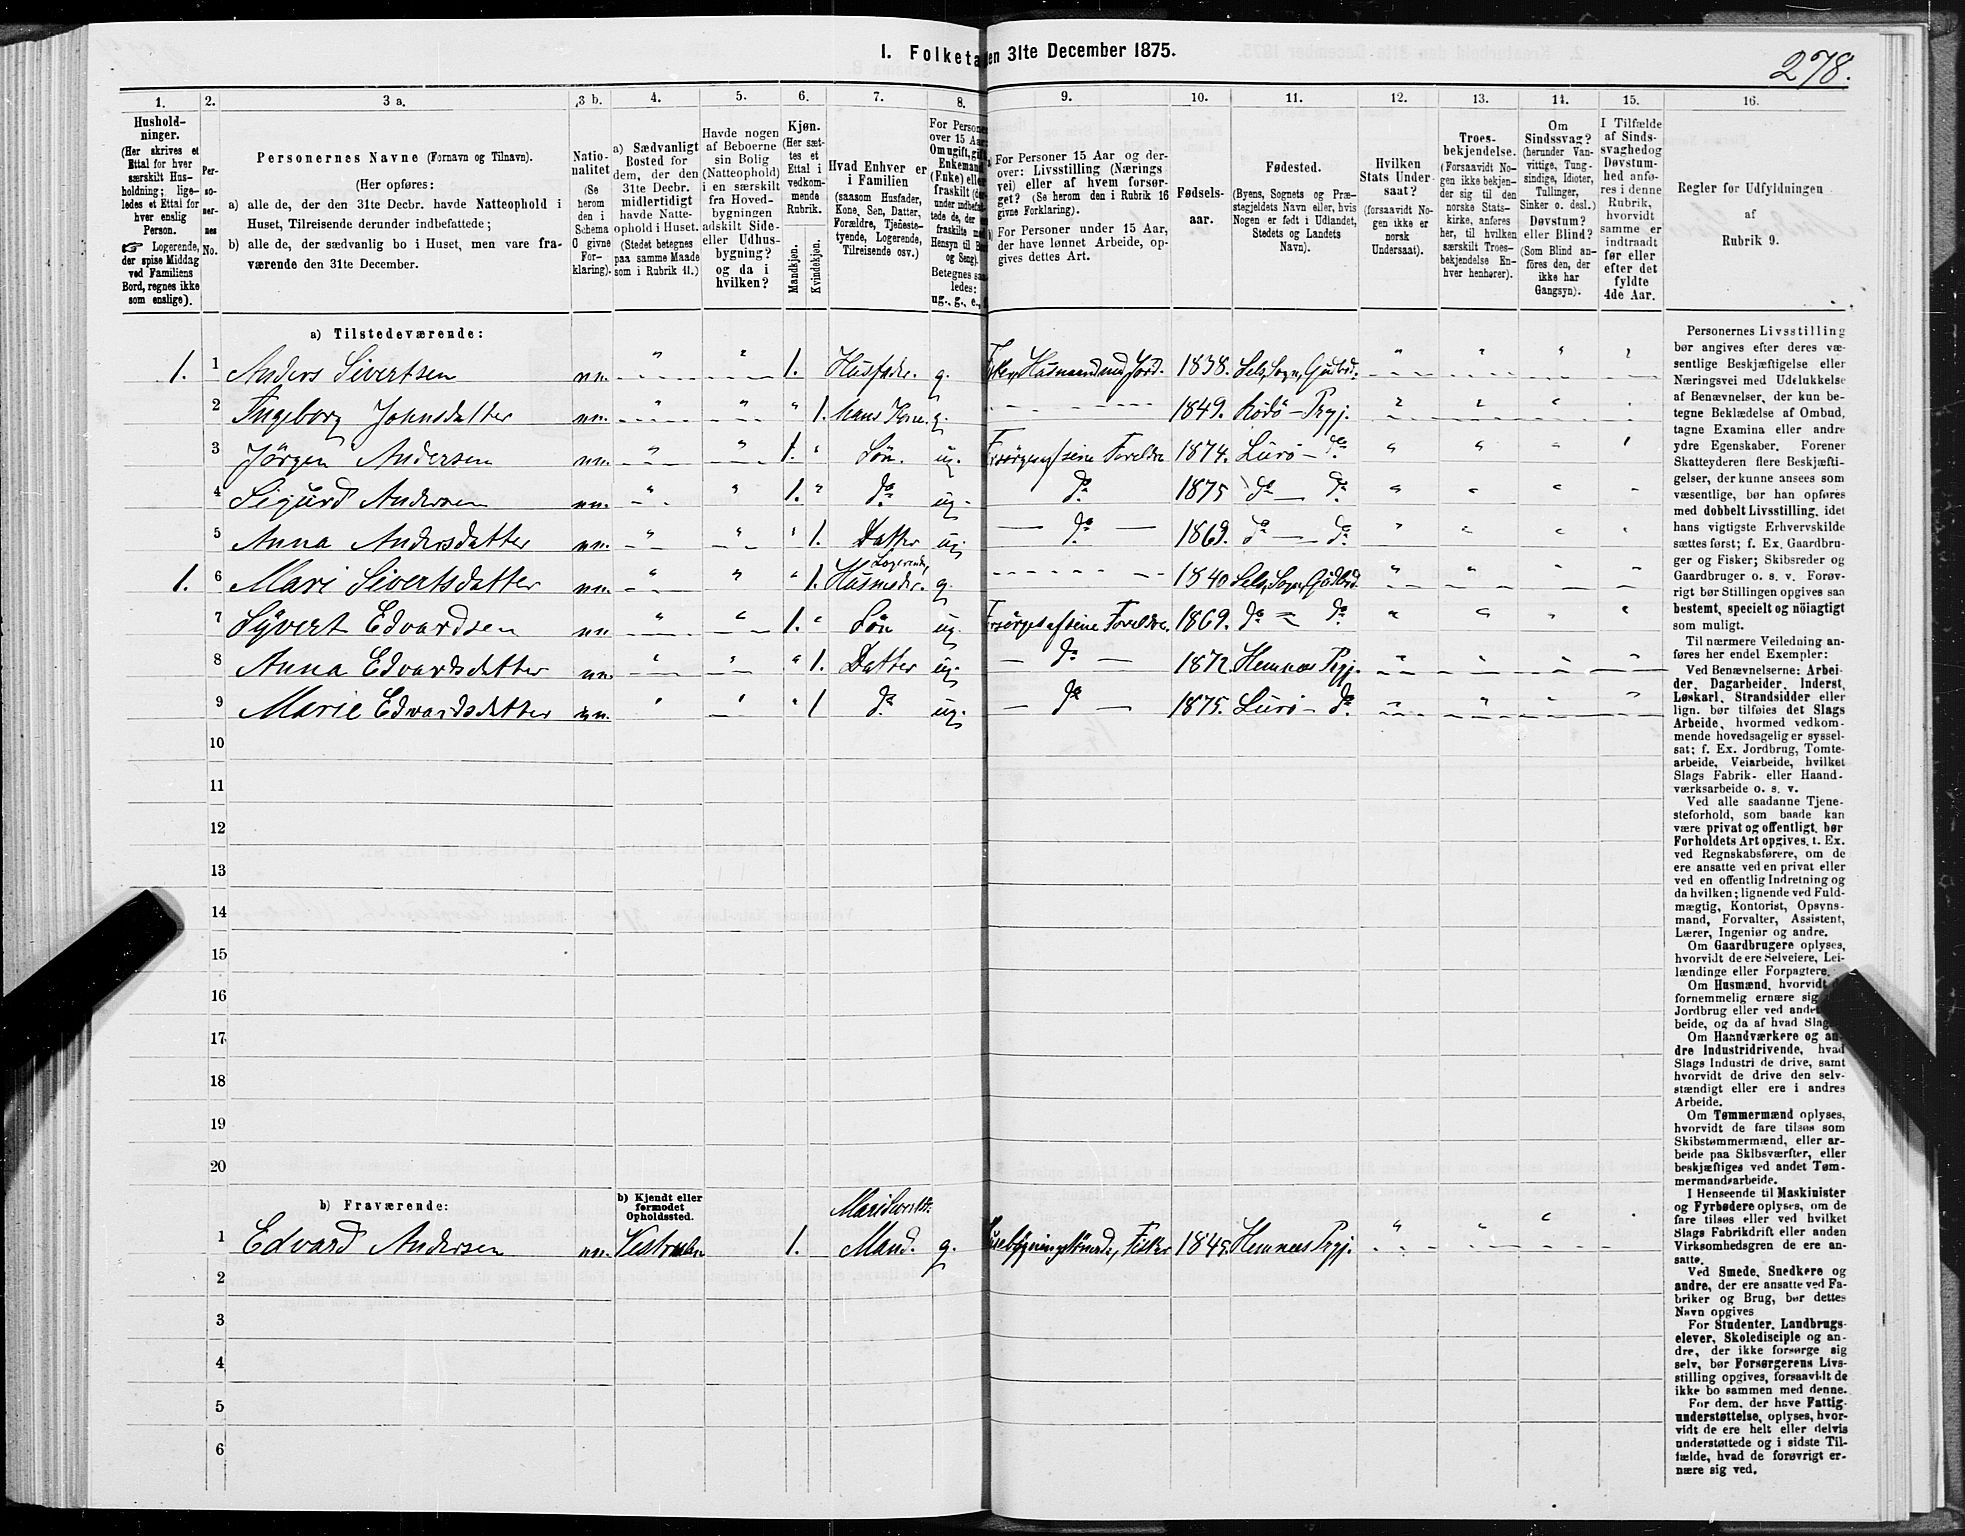 I. Folketa
den 31te December 1875.
278.
1.
2.
3 a.
3 b.
4.
5.
6.
7.
8.
9.
10.
11.
12.
13.
14.
15.
16.
Hushold-
ninger.
(Her skrives et
Ettal for hver
særskilt Hus-
holdning; lige-
ledes et Ettal for
hver enslig
Person.
☞ Logerende,
der spise Middag
ved Familiens
Bord, regnes ikke
som enslige).
Per-
so-
ner-
nes
No.
Personernes Navne (Fornavn og Tilnavn).
(Her opføres:
a) alle de, der den 31te Decbr. havde Natteophold i
Huset, Tilreisende derunder indbefattede;
b) alle de, der sædvanlig bo i Huset, men vare fra-
værende den 31te December.
Natio-
nalitet
(Se
herom
den i
Schema
O givne
For-
klaring).
a) Sædvanligt
Bosted for
dem, der den
31te Decbr.
midlertidigt
havde Natte-
ophold i Huset.
(Stedet betegnes
paa samme Maade
som i Rubrik 11.)
Havde nogen
af Beboerne
sin Bolig
(Natteophold)
i en særskilt
fra Hoved-
bygningen
adskilt Side-
eller Udhus-
bygning?
og da i
hvilken?
Kjøn.
(Her sæt-
tes et
Ettal i
vedkom-
mende
Rubrik.
Mandkjøn.
Kvindekjøn.
Hvad Enhver er
i Familien
(saasom Husfader,
Kone, Søn, Datter,
Forældre, Tjeneste-
tyende, Logerende,
Tilreisende osv.)
For Persone
over 15 Aar
Om ugift, gift
Enkemand
(Enke) elle
fraskilt (de
under indbefat-
tede de, der
fraskilte me
Hensyn til B
og Seng).
Betegnes saa
ledes:
ug., g., e.,
a) For Personer 15 Aar og der-
over: Livsstilling (Nærings
vei) eller af hvem forsør-
get? (Se herom den i Rubrik 16
givne Forklaring).
b) For Personer under 15 Aar,
der have lønnet Arbeide, op-
gives dettes Art.
Fødsels-
aar.
Fødested.
(Byens, Sognets og Præ-
stegjeldets Navn eller, hvis
Nogen er født i Udlandet,
Stedets og Landets
Navn).
Hvilken
Stats Under-
saat?
(forsaavidt No-
gen ikke er
norsk
Undersaat).
Troes-
bekjendelse.
(Forsaavidt No-
gen ikke bekjen-
der sig til den
norske Stats-
kirke, anføres
her, til hvilken
særskilt Troes-
bekjendelse En-
hver henhører).
Om
Sindssvag?
(herunder Van-
vittige, Tung-
sindige, Idioter,
Tullinger,
Sinker o. desl.)
Døvstum?
eller Blind?
(Som Blind an-
føres den, der
ikke har
Gangsyn).
I Tilfælde
af Sinds-
svaghed og
Døvstum-
hed anfø-
res i denne
Rubrik,
hvorvidt
samme er
indtraadt
før eller
efter det
fyldte
4de Aar.
Regler for Udfyldningen
af
Rubrik 9.
a) Tilstedeværende:
1. 1 Anders Sivertsen nn. 1. Husfader. g. Husmand med Jord. 1838. Sels, Sogn, Gudbd.
2 Ingeborg Johnsdatter nn. 1. Hans Kone. g. 1849. Rödö – Prgj.
3 Jörgen Andersen nn. 1. Sön. ug. Forsörges af sine Foreldre 1874. Lurö – do
4 Sigurd Andersen nn. 1. do ug. do 1875 do – do
5 Anna Andersdatter nn. 1. Datter ug. do 1869. do – do
Logerende,
1. 6 Mari Sivertsdatter nn. 1. g. 1840 Sels, Sogn, Gudbd.
7 Syvert Edvardsen nn. 1. Sön ug. Forsörges af sine Foreldre. 1869. do – do
8 Anna Edvardsdatter nn. 1. Datter ug. do 1872 Hemnes Prgj.
9 Marie Edvardsdatter nn. 1 do ug. do 1875. Lurö – do
10
11
12
13
14
15
16
17
18
19
20
b) Fraværende:
b) Kjendt eller
formodet
Opholdssted.
1 Edvard Andersen nn. 1. Mand. g. Fisker 1845. Hemnes Prgj.
2
3
4
5
6
Personernes Livsstilling
bør angives efter deres væ-
sentlige Beskjæftigelse eller
Næringsvei med Udelukkelse
af Benævnelser, der kun be-
tegne Beklædelse af Ombud,
tagne Examina eller andre
ydre Egenskaber. Forener
Skatteyderen flere Beskjæfti-
gelser, der kunne ansees som
væsentlige, bør han opføres
med dobbelt Livsstilling, idet
hans vigtigste Erhvervskilde
sættes først; f. Ex. Gaardbru-
ger og Fisker; Skibsreder og
Gaardbruger o. s. v. Forøv-
rigt bør Stillingen opgives saa
bestemt, specielt og nöiagtigt
som muligt.
Til nærmere Veiledning an-
føres her endel Exempler:
Ved Benævnelserne: Arbei-
der, Dagarbeider, Inderst,
Løskarl, Strandsidder eller
lign. bør tilføies det Slags
Arbeide, hvormed vedkom-
mende hovedsagelig er syssel-
sat; f. Ex. Jordbrug, Tomte-
arbeide, Veiarbeide, hvilket
Slags Fabrik- eller Haand-
værksarbeide o. s. v.
Ved alle saadanne Tjene-
steforhold, som baade kan
være privat og offentligt, bør
Forholdets Art opgives, t. Ex.
ved Regnskabsførere, om de
ere ansatte ved en privat eller
ved en offentlig Indretning og
da hvilken; lignende ved Fuld-
mægtig, Kontorist, Opsyns-
mand, Forvalter, Assistent,
Lærer, Ingeniør og andre.
Om Gaardbrugere oplyses,
hvorvidt de ere Selveiere, Lei-
lændinge eller Forpagtere.
Om Husmænd, hvorvidt
fornemmelig ernære sig
Jordbrug eller ved andet
beide, og da af hvad Slags
Om Haandværkere og an-
dre Industridrivende, hvad
Slags Industri de drive, samt
hvorvidt de drive den selv-
stændigt eller ere i andres
Arbeide.
Om Tømmermænd oplyses,
hvorvidt de fare tilsøs som
Skibstømmermænd, eller ar-
beide paa Skibsværfter, eller
beskjæftiges ved andet Tøm-
mermandsarbeide.
I Henseende til Maskinister
og Fyrbødere oplyses, om de
fare tilsøs eller ved hvilket
Slags Fabrikdrift eller anden
Virksomhedsgren de ere an-
satte.
Ved Smede, Snedkere og
andre, der ere ansatte ved Fa-
briker og Brug, bør dettes
Navn opgives
For Studenter, Landbrugs-
elever, Skoledisciple og an-
dre, der ikke forsørge sig
selv, bør Forsørgerens Livs-
stilling opgives, forsaavidt de
ikke bo sammen med denne.
For dem, der have Fattig-
understøttelse, oplyses, hvor-
vidt de ere helt eller delvis
understøttede og i sidste Til-
fælde, hvad de forøvrigt er-
nære sig ved.